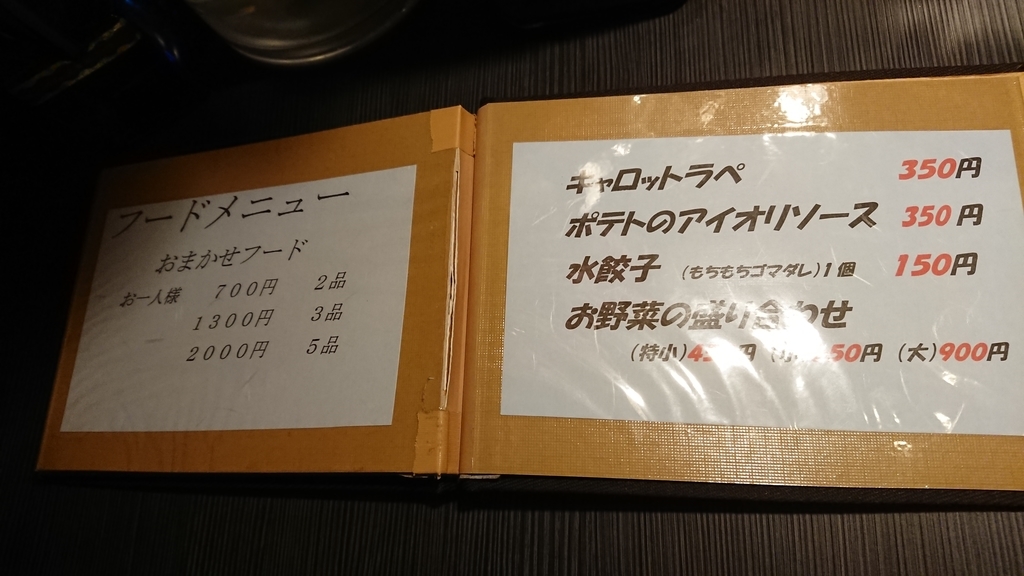 フードメニュー
おまかせフード
お一人様 700円 2品
1300円 3品
2000円 5品
キャロットラペ 350円
ポテトのアイオリソース 350円
水餃子 (もちもちゴマダレ)1個 150円
お野菜の盛り合わせ
(特小) 円 (小) 50円 (大)900円